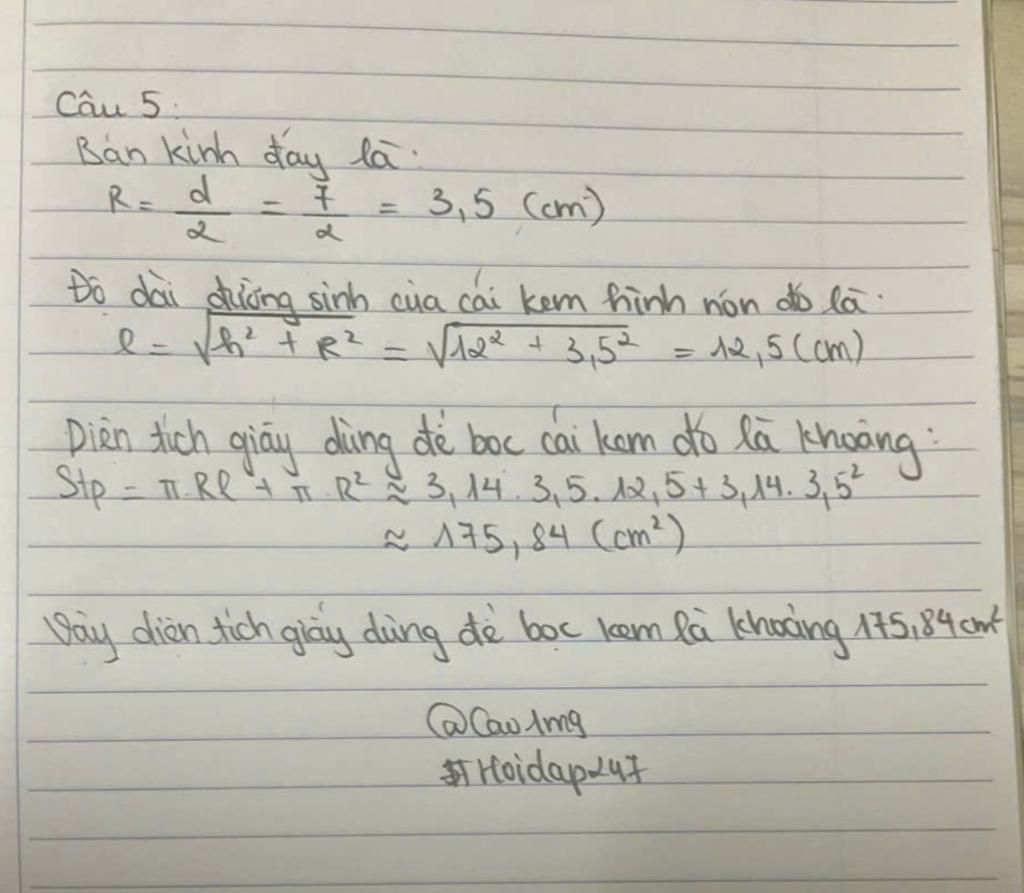 Câu 5:
Bán kính đáy là:
R = d/2 = 7/2 = 3,5 (cm)
Độ dài đường sinh của cái kem hình nón đó là:
l = √h² + R² = √12² + 3,5² = 12,5 (cm)
Diện tích giấy dùng để bọc cái kem đó là khoảng:
Stp = π.Rl + π.R² ≈ 3,14.3,5.12,5 + 3,14.3,5²
≈ 175,84 (cm²)
Vậy diện tích giấy dùng để bọc kem là khoảng 175,84 cm²
@Cao1mg
#Hoidap247